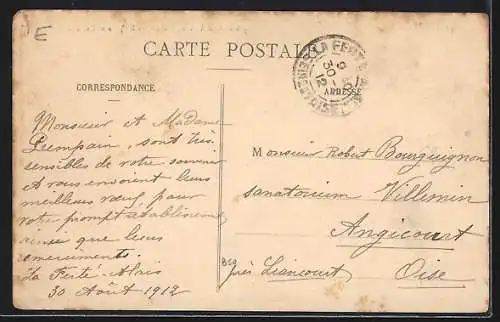 E
CARTE POSTALE
LA FERTE
9 30
30 - 8
12
CORRESPONDANCE
ADRESSE
Monsieur et Madame
Peempain, sont très
sensibles de votre souvenir
et vous envoient leurs
meilleurs vœux pour
votre prompt établissement
ainsi que leurs
remerciements.
La Ferté-Alais
30 Août 1912
Monsieur Robert Bourguignon
sanatorium Villemin
Angicourt
près Liancourt
Oise